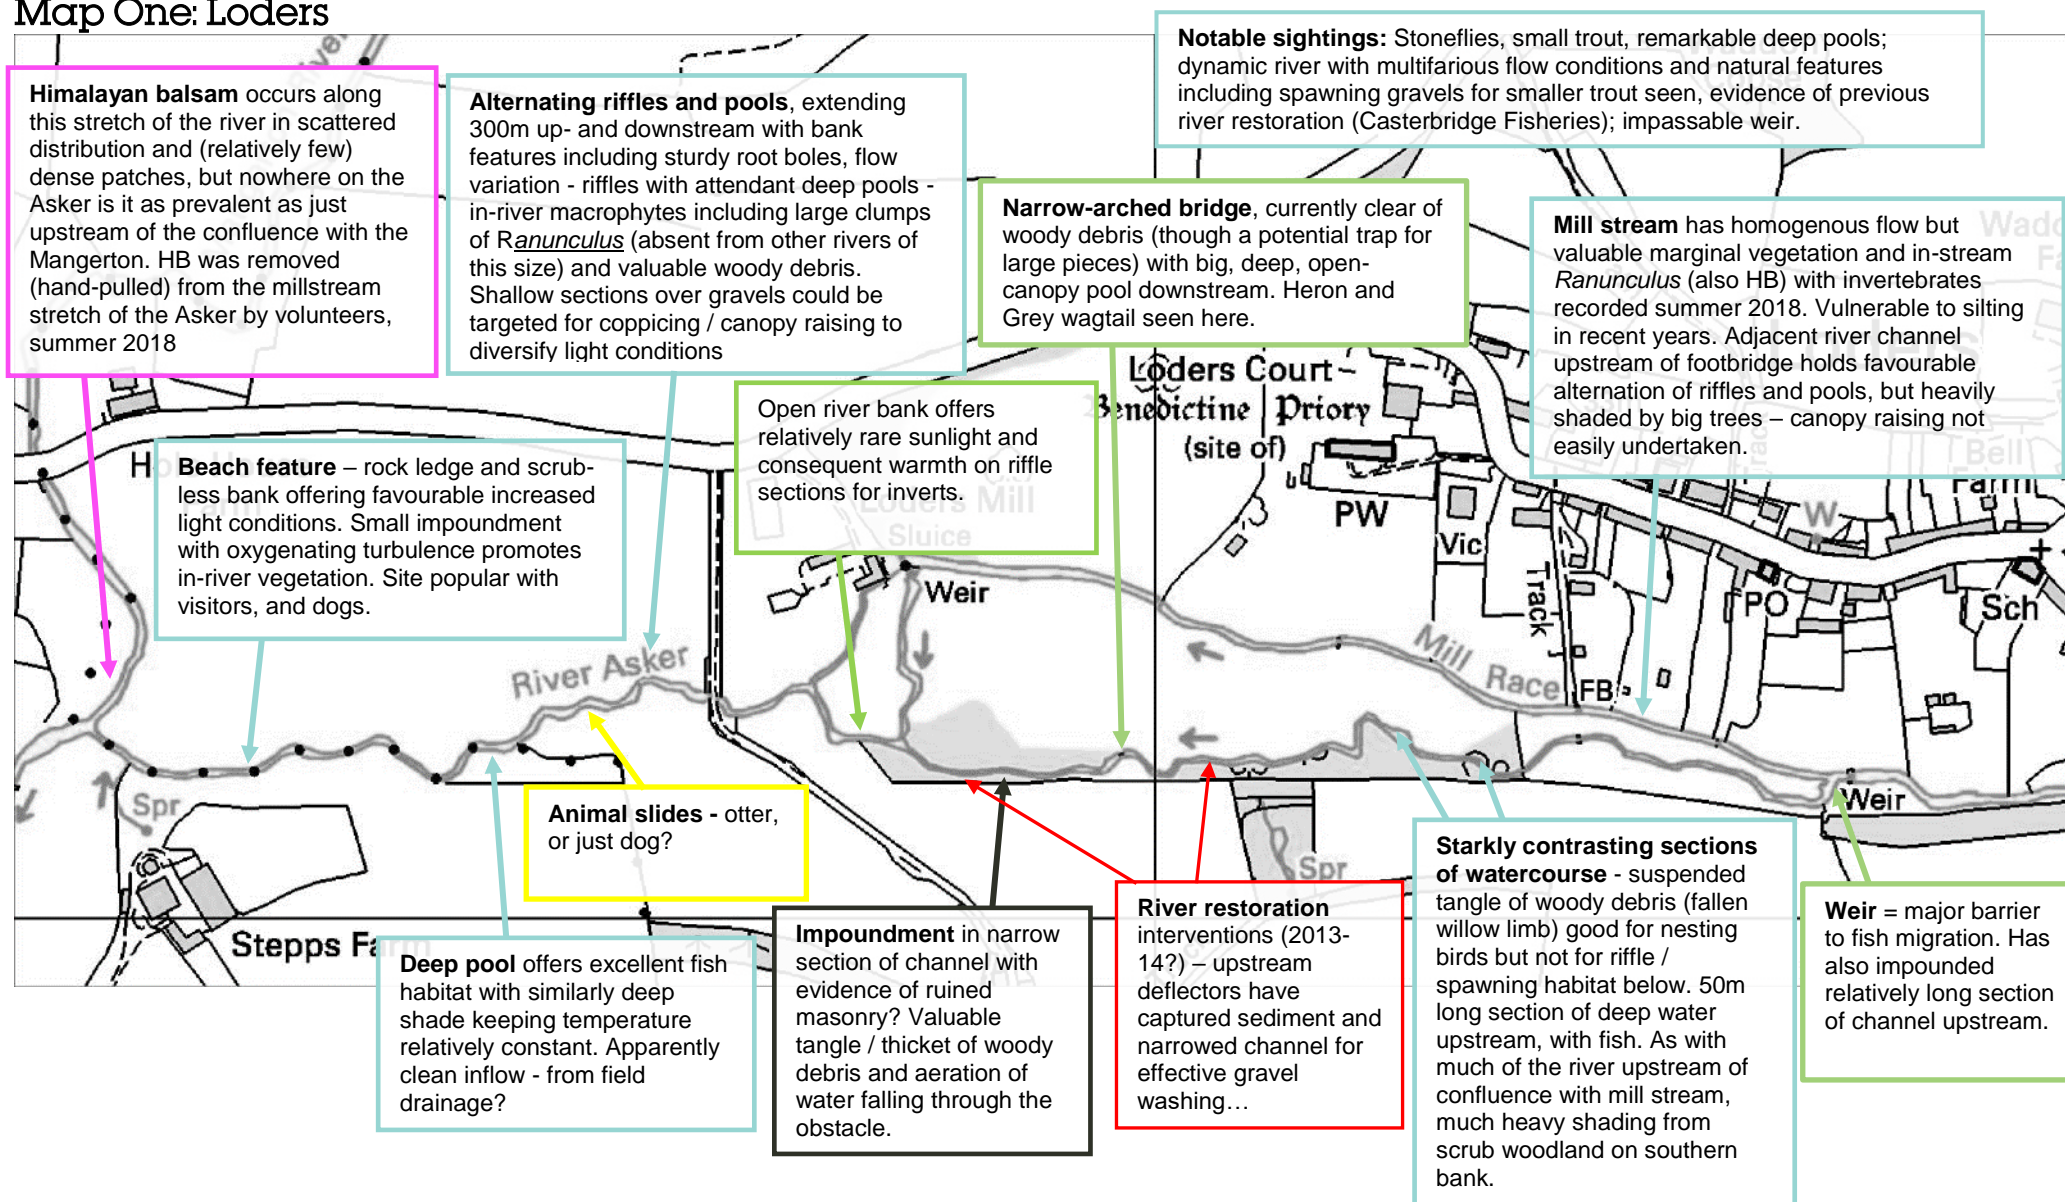 Map One: Loders
Notable sightings: Stoneflies, small trout, remarkable deep pools;
dynamic river with multifarious flow conditions and natural features
including spawning gravels for smaller trout seen, evidence of previous
river restoration (Casterbridge Fisheries); impassable weir.
Himalayan balsam occurs along
this stretch of the river in scattered
distribution and (relatively few)
dense patches, but nowhere on the
Asker is it as prevalent as just
upstream of the confluence with the
Mangerton. HB was removed
(hand-pulled) from the millstream
stretch of the Asker by volunteers,
summer 2018
Alternating riffles and pools, extending
300m up- and downstream with bank
features including sturdy root boles, flow
variation - riffles with attendant deep pools -
in-river macrophytes including large clumps
of Ranunculus (absent from other rivers of
this size) and valuable woody debris.
Shallow sections over gravels could be
targeted for coppicing / canopy raising to
diversify light conditions
Narrow-arched bridge, currently clear of
woody debris (though a potential trap for
large pieces) with big, deep, open-
canopy pool downstream. Heron and
Grey wagtail seen here.
Mill stream has homogenous flow but
valuable marginal vegetation and in-stream
Ranunculus (also HB) with invertebrates
recorded summer 2018. Vulnerable to silting
in recent years. Adjacent river channel
upstream of footbridge holds favourable
alternation of riffles and pools, but heavily
shaded by big trees – canopy raising not
easily undertaken.
Beach feature – rock ledge and scrub-
less bank offering favourable increased
light conditions. Small impoundment
with oxygenating turbulence promotes
in-river vegetation. Site popular with
visitors, and dogs.
Open river bank offers
relatively rare sunlight and
consequent warmth on riffle
sections for inverts.
Loders Court
Benedictine Priory
(site of)
PW
Vic
Track
PO
Sch
W
Bell
Farm
River
Farm
Loders Mill
Sluice
Weir
River Asker
Mill Race
FB
Weir
Spr
Spr
Stepps Farm
Animal slides - otter,
or just dog?
Deep pool offers excellent fish
habitat with similarly deep
shade keeping temperature
relatively constant. Apparently
clean inflow - from field
drainage?
Impoundment in narrow
section of channel with
evidence of ruined
masonry? Valuable
tangle / thicket of woody
debris and aeration of
water falling through the
obstacle.
River restoration
interventions (2013-
14?) – upstream
deflectors have
captured sediment and
narrowed channel for
effective gravel
washing…
Starkly contrasting sections
of watercourse - suspended
tangle of woody debris (fallen
willow limb) good for nesting
birds but not for riffle /
spawning habitat below. 50m
long section of deep water
upstream, with fish. As with
much of the river upstream of
confluence with mill stream,
much heavy shading from
scrub woodland on southern
bank.
Weir = major barrier
to fish migration. Has
also impounded
relatively long section
of channel upstream.